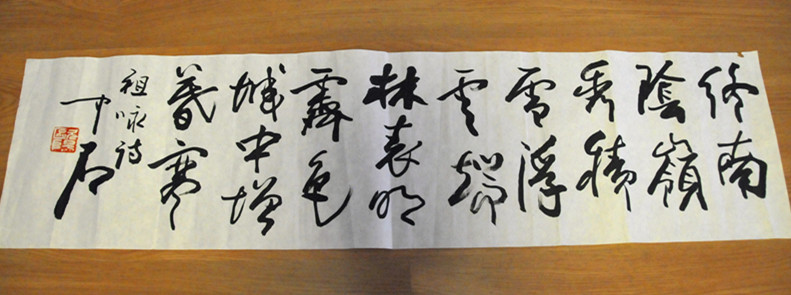 终南
陰嶺
秀積
雪浮
雲端
林表明
霽色
城中增
暮寒
祖咏诗
中石